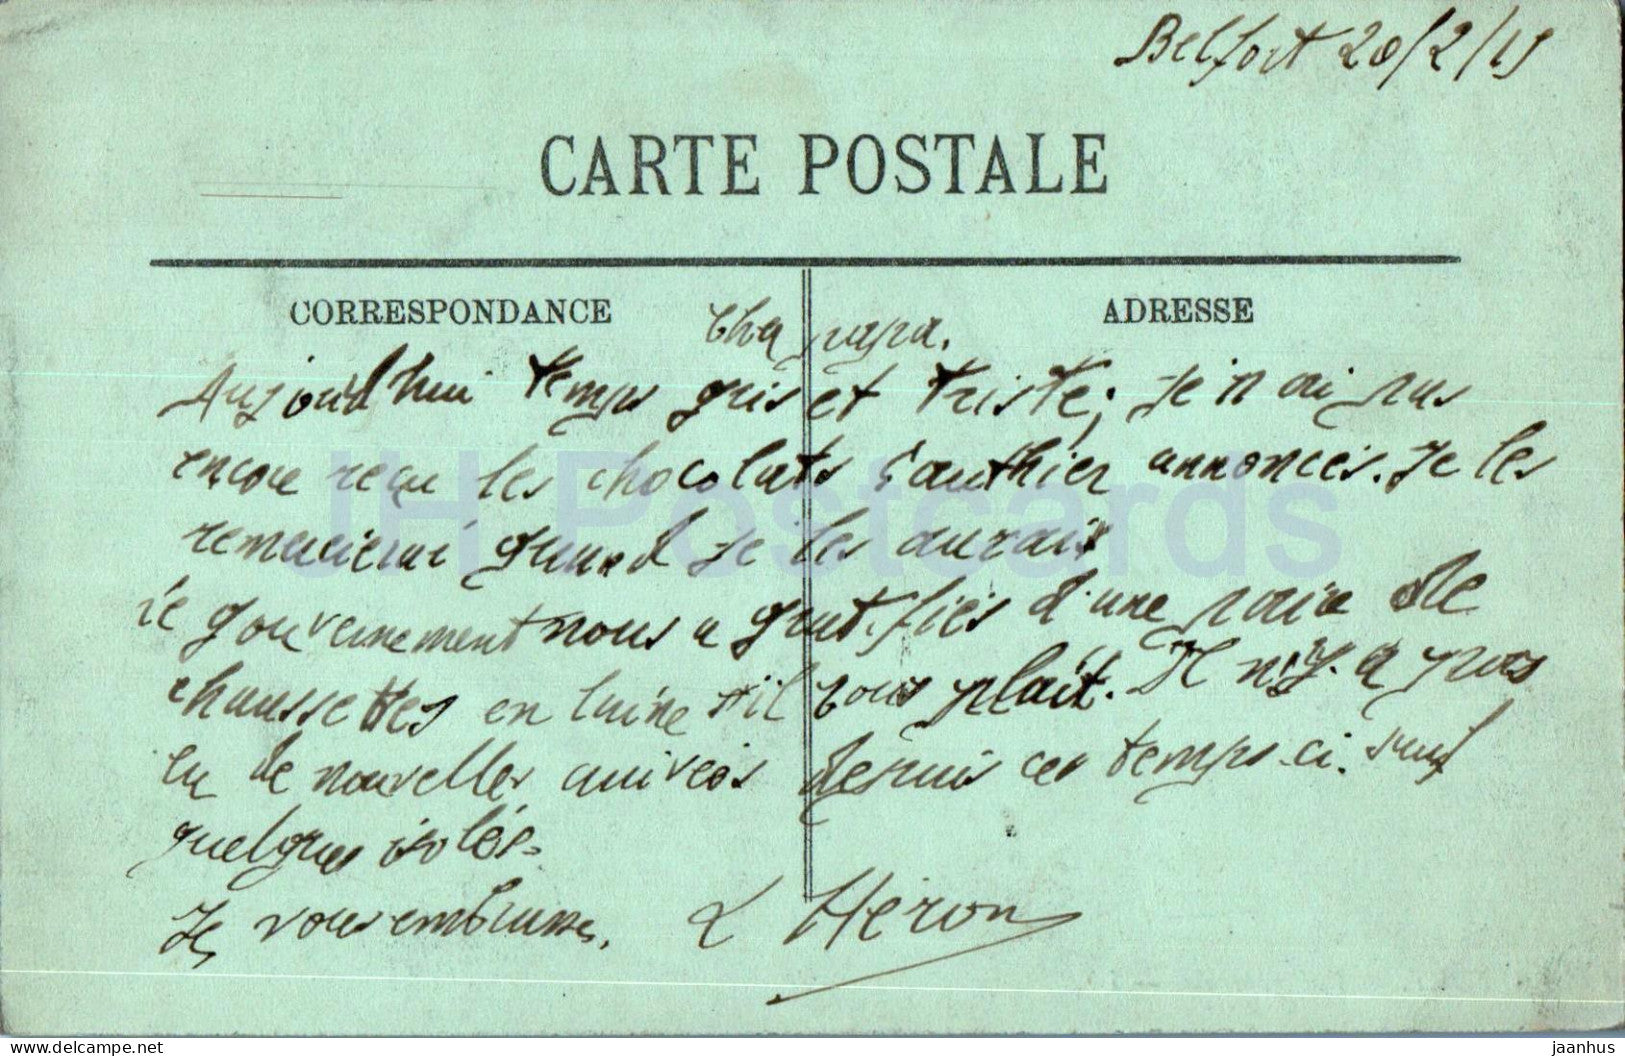 Belfort 20/2/15
CARTE POSTALE
CORRESPONDANCE
ADRESSE
Cher papa.
Aujourd'hui temps gris et triste; je n'ai pas
encore reçu les chocolats Gauthier annoncés. Je les
remercierai quand je les aurais
le gouvernement nous a gratifiés d'une paire de
chaussettes en laine s'il vous plait. Il n'y a pas
eu de nouvelles depuis ces temps-ci. sauf
quelques isolés.
Je vous embrasse. L Héron
JH Postcards
delcampe.net
jaanhus